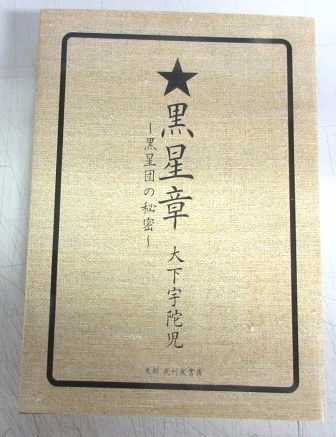 ★黒星章
–黒星団の秘密~
大下宇陀児
東都 我刊我書房